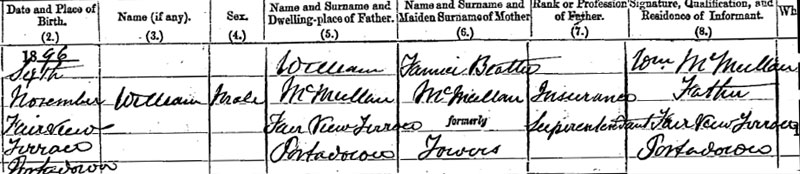 Date and Place of Birth. (2.) Name (if any). (3.) Sex. (4.) Name and Surname and Dwelling-place of Father. (5.) Name and Surname and Maiden Surname of Mother (6.) Rank or Profession of Father. (7.) Signature, Qualification, and Residence of Informant. (8.) Wh
1896 William Fannie Beattie Wm. McMullan
November William Male McMullan McMullan Insurance Father
Fair View Fair View Terrace formerly Superintendant Fair View Terrace
Terrace Portadown Towers Portadown
Portadown